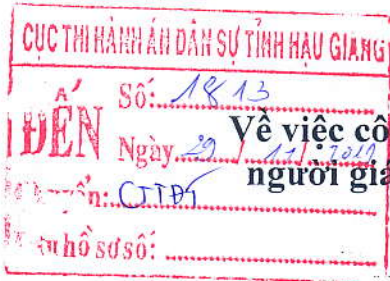 CỤC THI HÀNH ÁN DÂN SỰ TỈNH HẬU GIANG
ĐẾN
Số: 1813
Ngày 29/11/2019
Về việc cô
người giá
CTTĐT
hồ sơ số: